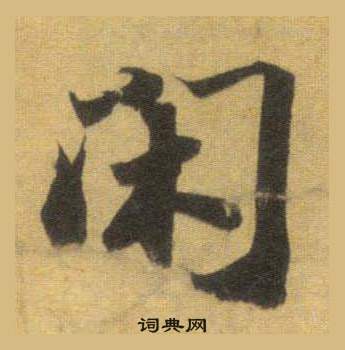 闲
词典网